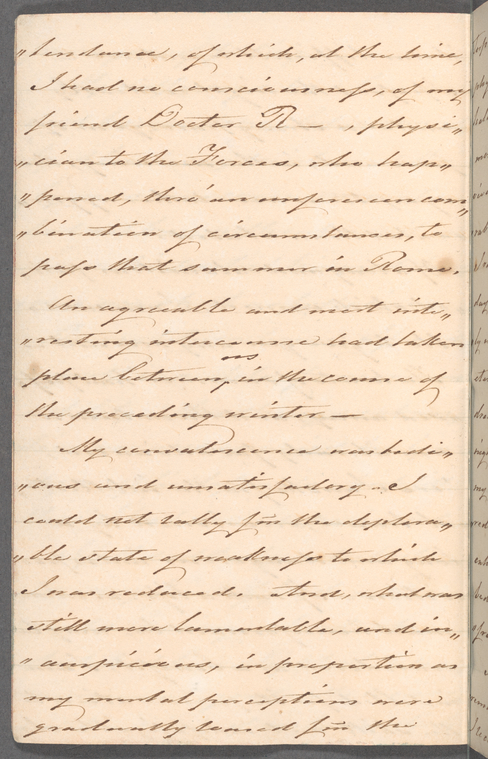 „tendance, of which, at the time,
I had no consciousness, of my
friend Doctor R—, physi„
„cian to the Forces, who hap„
„pened, thro' an unforeseen com„
„bination of circumstances, to
pass that summer in Rome.
An agreeable and most inte„
„resting intercourse had taken
place between us in the course of
the preceding winter —
My convalescence was tedi„
„ous and unsatisfactory. I
could not rally from the deplora„
„ble state of weakness to which
I was reduced. And, what was
still more lamentable, and in„
„auspicious, in proportion as
my mental perceptions were
gradually loosed from the